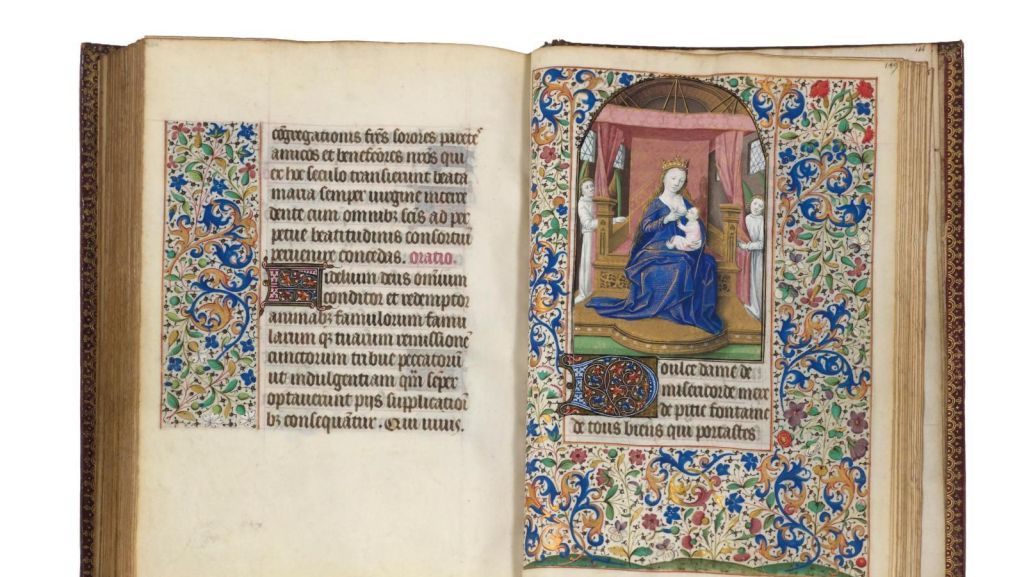 cōgregationis frēs sorores parēte⁹
amicos et benefcōres nrōs qui
ex hoc seculo transierunt beata
maria semper virgine interce
dente cum omnibꝫ scīs ad per
petue beatitudinis consortiū
pervenire concedas. Oratio.
Fidelium deus omnium
conditor et redemptor
animabꝫ famulorum famu
larum qꝫ tuarum remissionē
cunctorum tribue peccatorū
ut indulgentiam quā sēper
optaverunt pijs supplicationi
bꝫ consequātur. Qui vivis.
149
Doulce dame de
misericorde mere
de pitie fontaine
de tous biens qui portastes